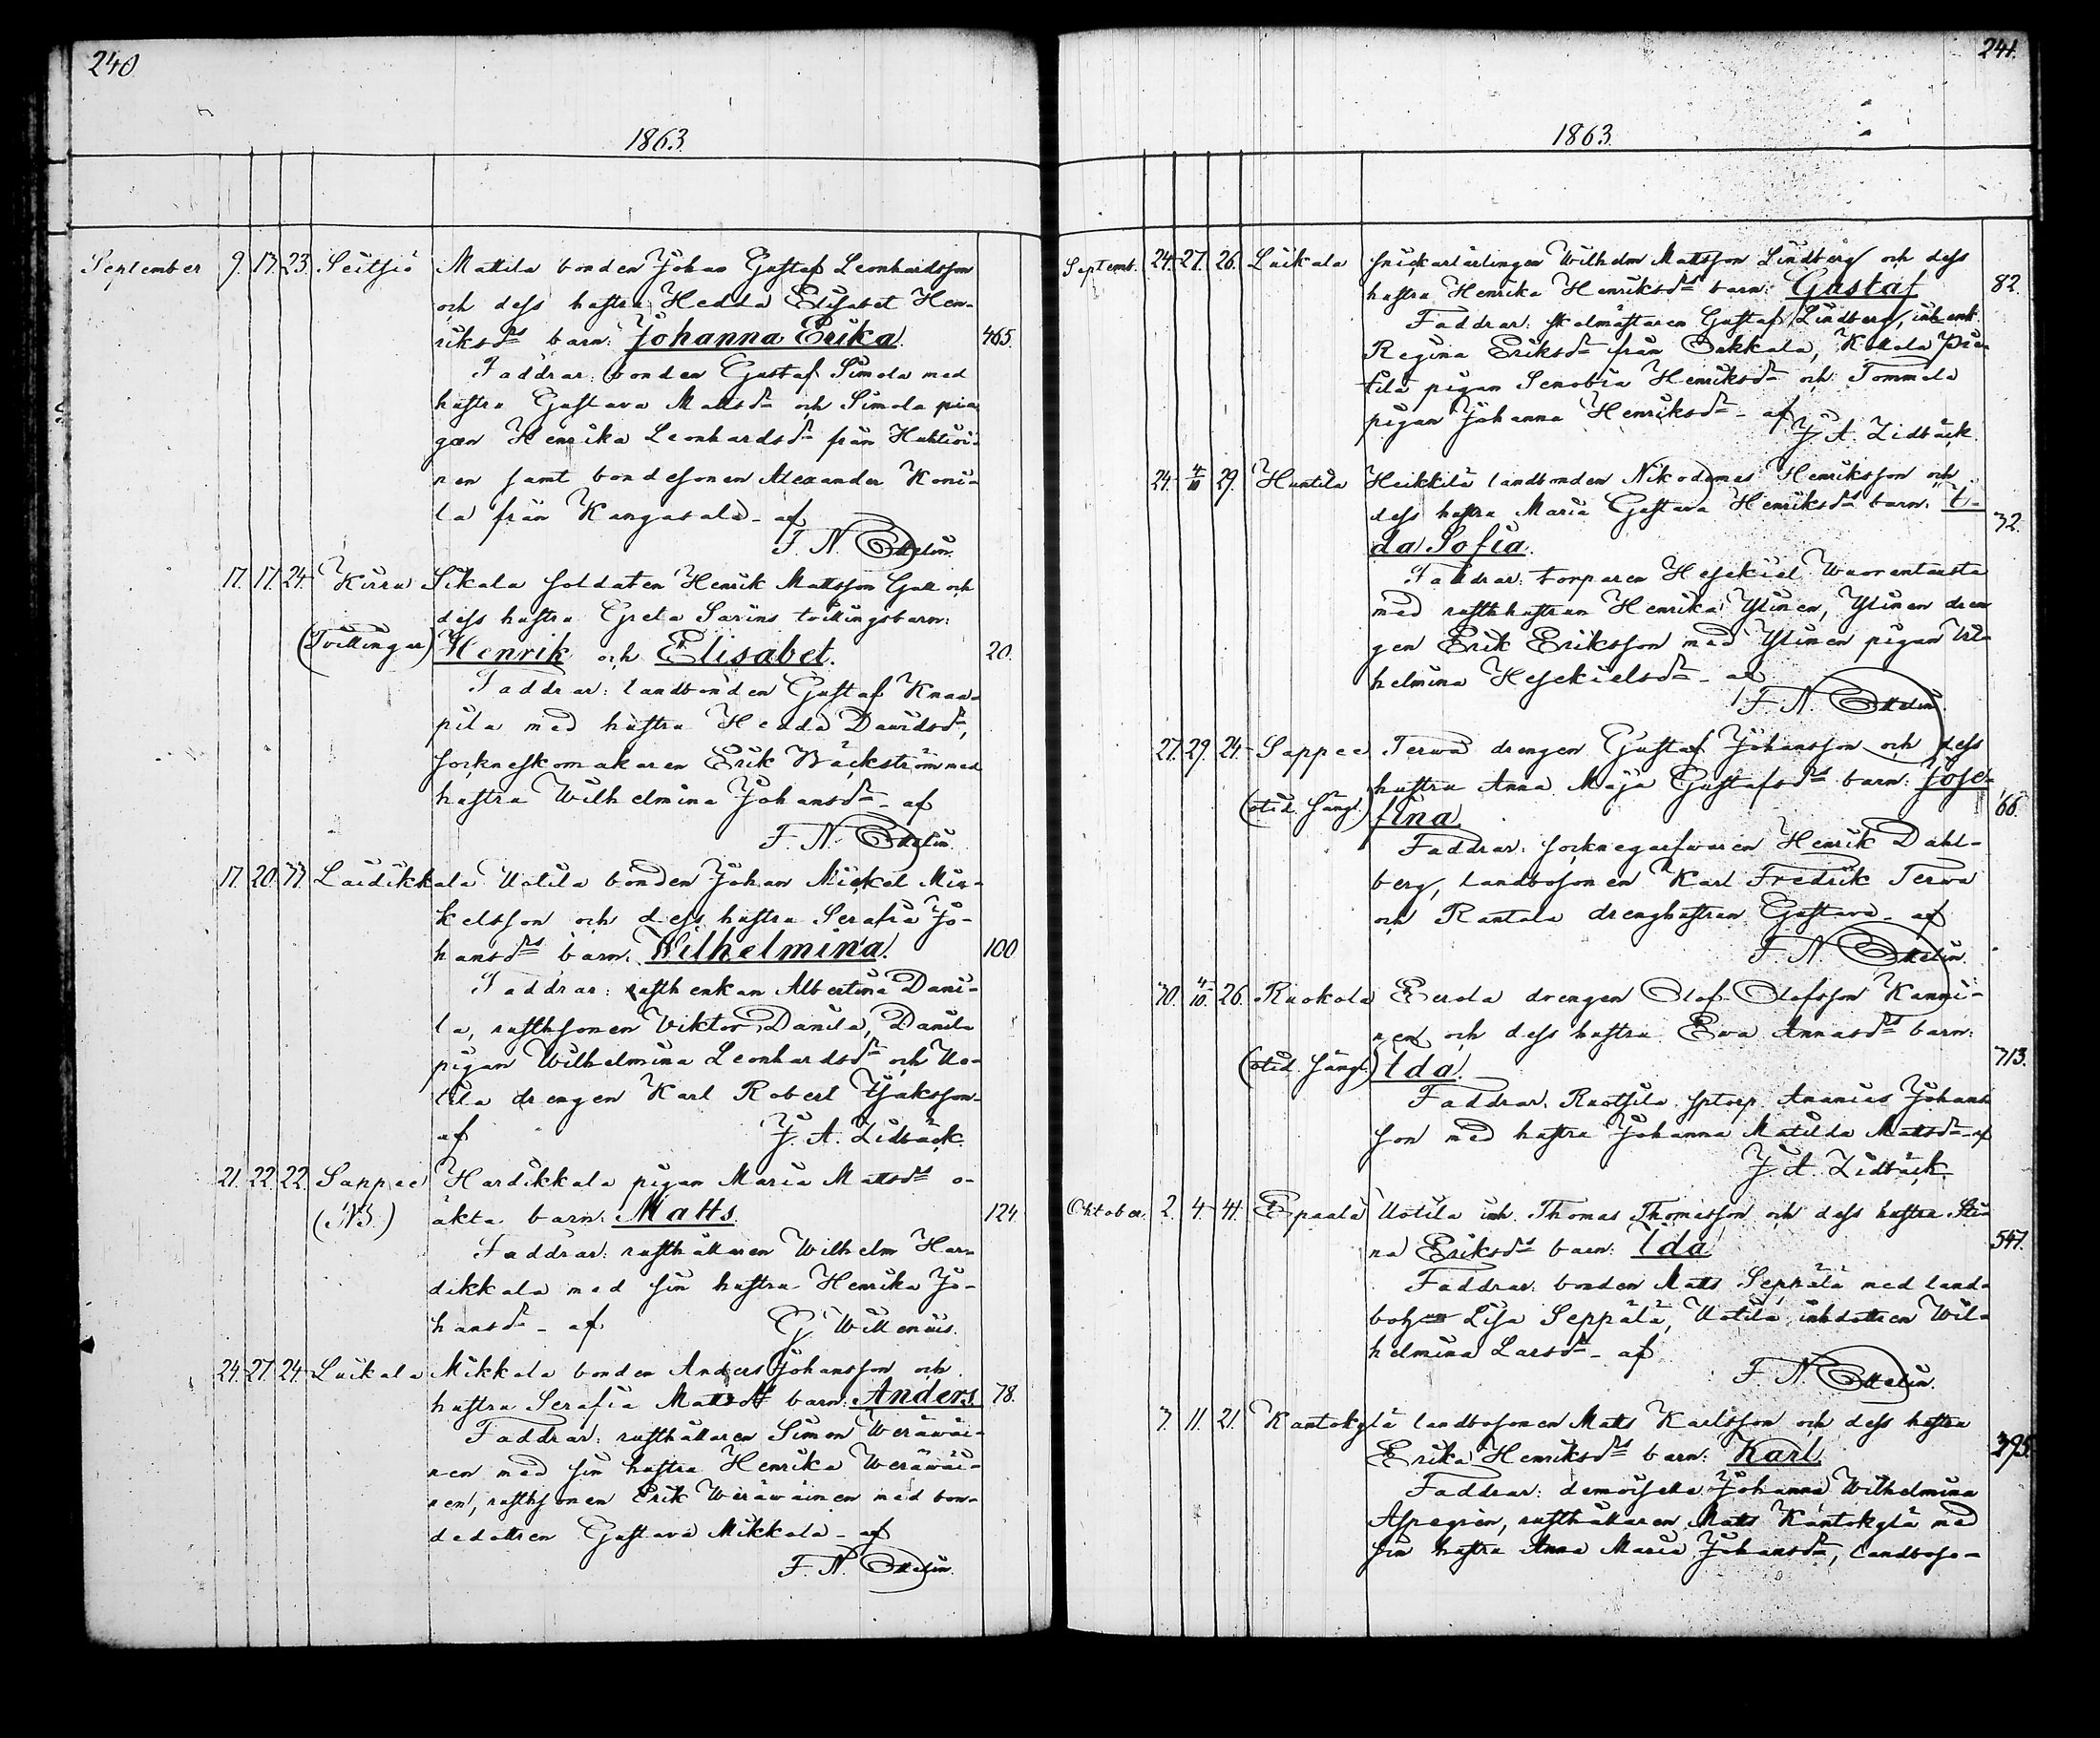 240
1863.
September 9. 13. 23. Seitsiö Mattila bonden Johan Gustaf Leonhardsson
och dess hustru Hedda Elisabet Hen-
riksdrs barn: Johanna Erika. 465.
Faddrar: bonden Gustaf Simola med
hustru Gustava Mattsdr och Simola pi-
gan Henrika Leonhardsdr från Huhtioi-
nen samt bondesonen Alexander Koni-
la från Kangasala - af
F. N. Ottelin.
17. 17. 24. Kirru Sikala soldaten Henrik Mattsson Gall och
dess hustru Greta Sarins tvillingsbarn:
(Tvillingar) Henrik och Elisabet. 20.
Faddrar: landbonden Gustaf Knaa-
pila med hustru Hedda Davidsdr,
sockneskomakaren Erik Wäckström med
hustru Wilhelmina Johansdr - af
F. N. Ottelin.
17. 20. 33. Laidikkala Uotila bonden Johan Mickel Mic-
kelsson och dess hustru Serafia Jo-
hansdrs barn: Wilhelmina. 100
Faddrar: rusth.enkan Albertina Dani-
la, rusth.sonen Viktor Danila, Danila
pigan Wilhelmina Leonhardsdr och Uo-
tila drengen Karl Robert Isaksson -
af J. A. Lidbäck.
21. 22. 22. Sappee Hardikkala pigan Maria Mattsdrs o-
(NB.) äkta barn: Matts. 124.
Faddrar: rusthållaren Wilhelm Har-
dikkala med sin hustru Henrika Jo-
hansdr - af G. Willenius.
24. 27. 24. Luikala Mikkala bonden Anders Johansson och
hustru Serafia Mattsdrs barn: Anders. 78.
Faddrar: rusthållaren Simon Weräwäi-
nen med sin hustru Henrika Weräwäi-
nen, rusth.sonen Erik Weräwäinen med bon-
dedottren Gustava Mikkala - af
F. N. Ottelin.
241.
1863.
Septemb. 24. 27. 26. Luikala snickarlärlingen Wilhelm Mattsson Lindberg och dess
hustru Henrika Henriksdrs barn: Gustaf 82.
Faddrar: skolmästaren Gustaf Lindberg, inh.enk.
Regina Eriksdr från Sakkala, Kettola
pigan Senobia Henriksdr och Tommola
pigan Johanna Henriksdr - af
J. A. Lidbäck.
24. 4/10 29. Huntila Heikkilä landbonden Nikodemus Henriksson och
dess hustru Maria Gustava Henriksdrs barn: I-
da Sofia. 32.
Faddrar: torparen Hesekiel Wuorentausta
med rusth.hustrun Henrika Ylinen, Ylinen dren
gen Erik Eriksson med Ylinen pigan Wil-
helmina Hesekielsdr - af
F. N. Ottelin.
27. 29. 24. Sappee Terwa drengen Gustaf Johansson och dess
hustru Anna Maja Gustafsdrs barn: Jose-
fina. 66.
Faddrar: socknegarfvaren Henrik Dahl-
berg, landbosonen Karl Fredrik Terwa
och Rantala drenghustrun Gustava - af
F. N. Ottelin.
30. 4/10. 26. Ruokola Eerola drengen Olof Olofsson Kanni-
nen och dess hustru Ewa Annasdrs barn:
Ida. 713.
Faddrar: Ruotsila sptorp. Ananias Johans
son med hustru Johanna Matilda Mattsdr - af
J. A. Lidbäck.
Oktober. 2. 4. 41. Epaala Uotila inh. Thomas Thomasson och dess hustru Sti-
na Eriksdrs barn: Ida 547.
Faddrar: bonden Matts Seppälä med land-
boh Lisa Seppälä, Uotila inh.dottren Wil-
helmina Larsdr - af
F. N. Ottelin.
7. 11. 21. Kantokylä landbosonen Matts Karlsson och dess hustru
Erika Henriksdrs barn: Karl. 395.
Faddrar: demoiselle Johanna Wilhelmina
Aspegren, rusthållaren Matts Kantokylä med
sin hustru Anna Maria Johansdr, landboso-